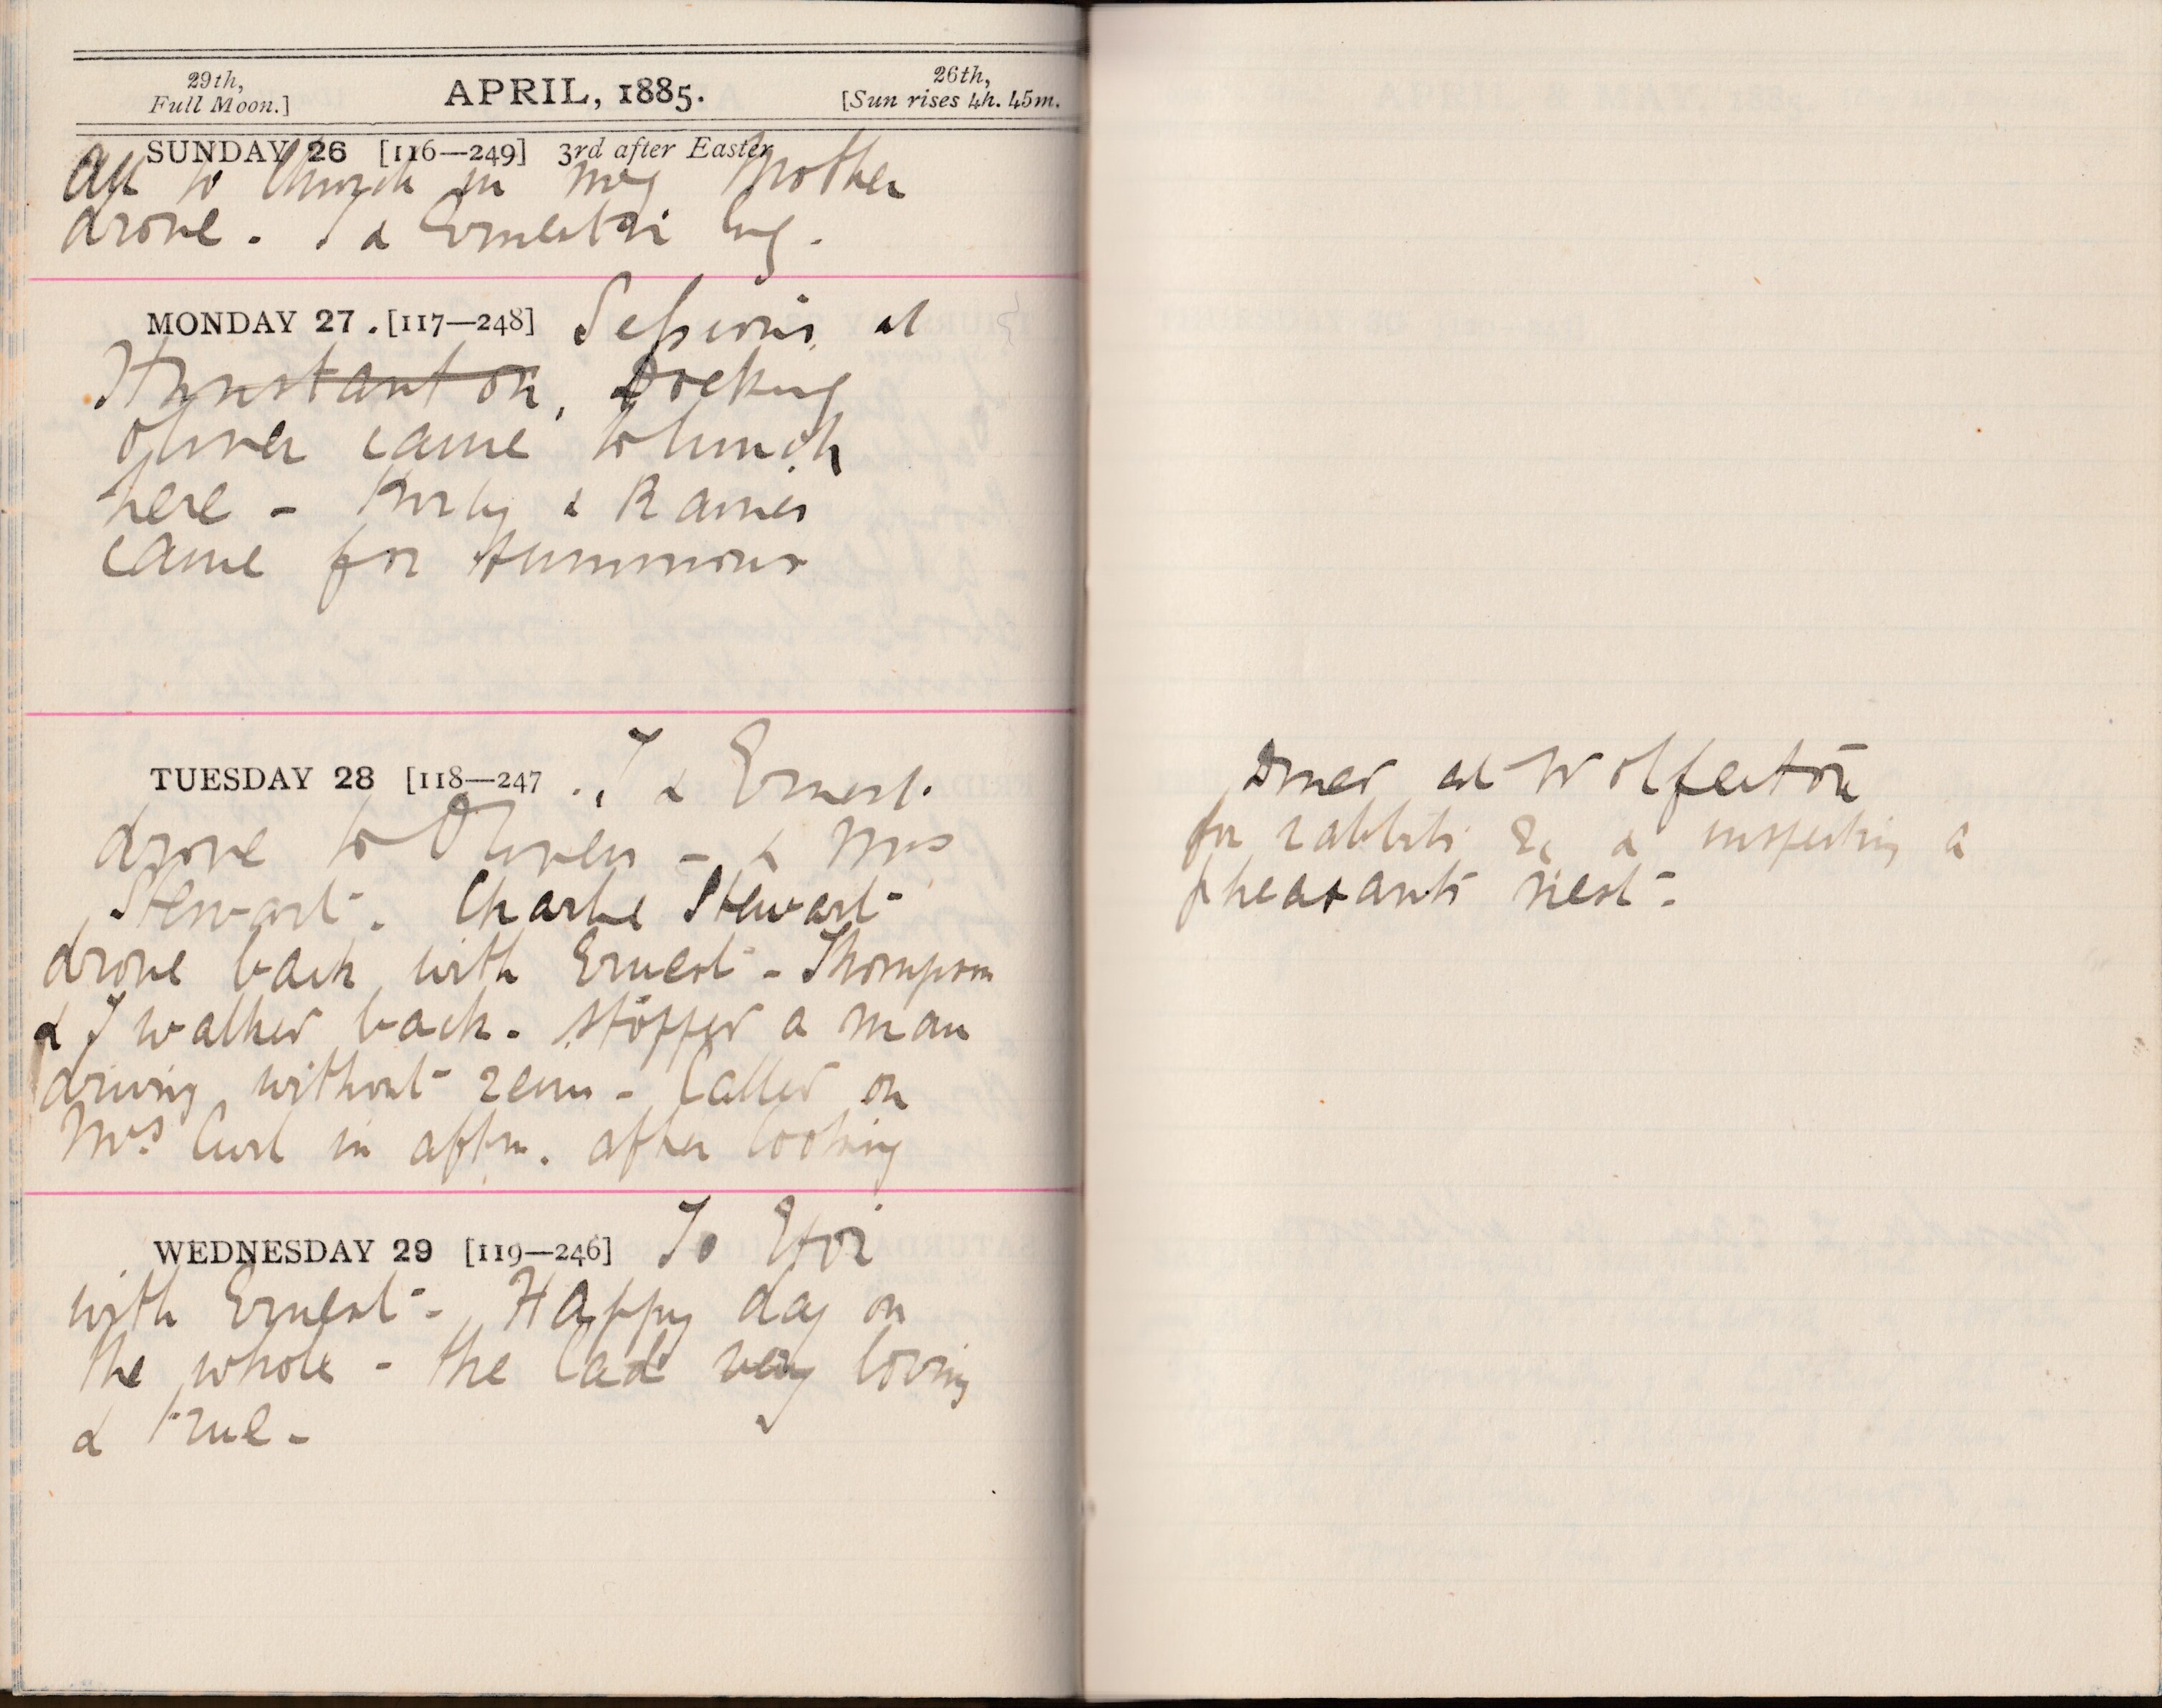 29th,
Full Moon.]
APRIL, 1885.
26th,
[Sun rises 4h. 45m.
SUNDAY 26 [116—249] 3rd after Easter
All to Church in mg Mother
drove. I &
MONDAY 27. [117—248] Sessions at
Hunstanton, Docking
Oliver came to lunch
here - Kirby &
came for summons
TUESDAY 28 [118—247 I & Ernest.
drove to Olivers - & Mrs
Stewart. Charlie Stewart
drove back with Ernest - Thompson
& I walked back. stopped a man
driving without reins - Called on
Mrs Curl in aftn. after looking
WEDNESDAY 29 [119—246] To Eton
with Ernest - Happy day on
the whole - the lad very loving
& true -
Dined at Wolferton
for rabbits &c & inspecting a
pheasants nest -